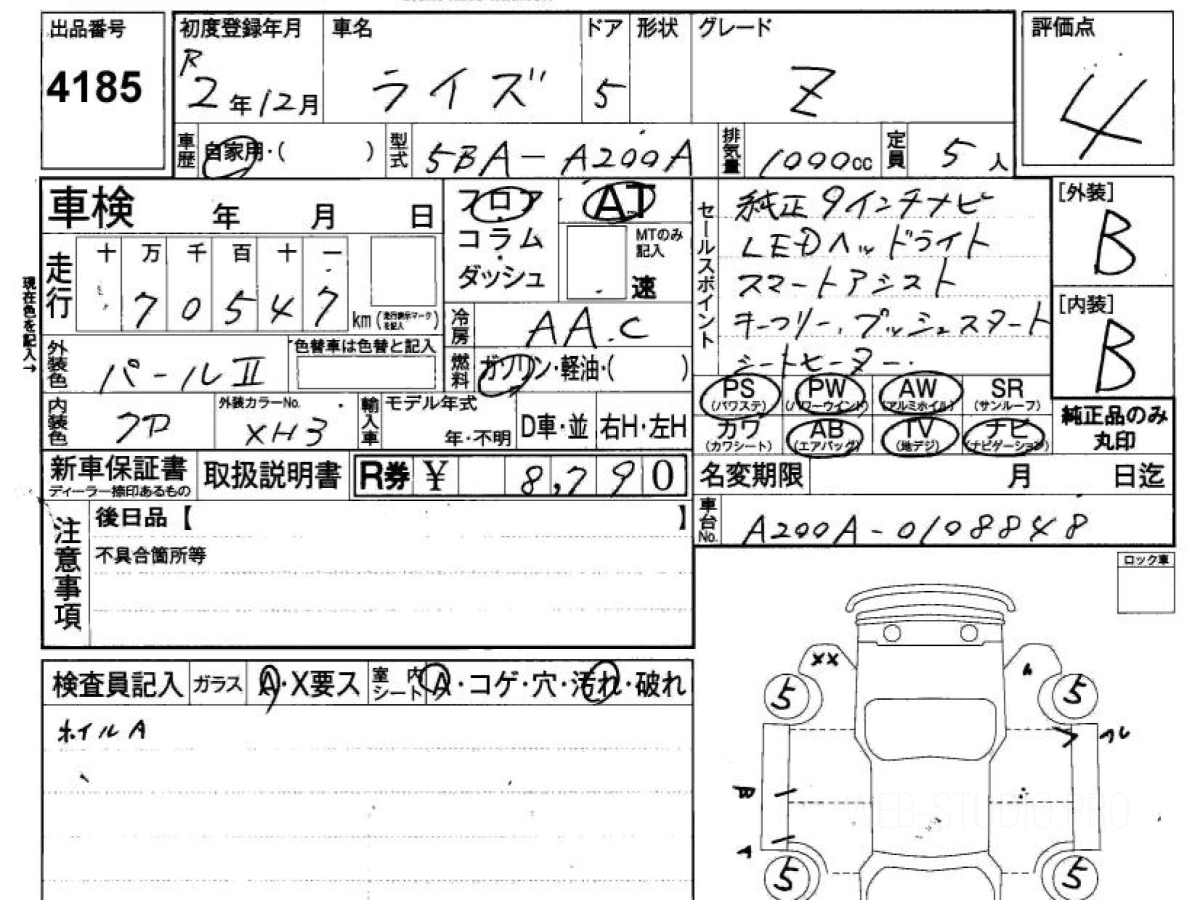 出品番号
4185
初度登録年月 車名 ドア 形状 グレード
R2年12月 ライズ 5 Z
評価点
4
車歴 自家用・( ) 型式 5BA-A200A 排気量 1000cc 定員 5人
車検 年 月 日
走行 十 万 千 百 十 一
70547 km (走行表示マークを記入)
現在色を記入→
外装色 パールⅡ 色替車は色替と記入
内装色 クロ 外装カラーNo. XH3
輸入車 モデル年式 年・不明 D車・並 右H・左H
フロア・コラム・ダッシュ
AT
MTのみ記入
速
冷房 AA.C
燃料 ガソリン・軽油・( )
セールスポイント
純正9インチナビ
LEDヘッドライト
スマートアシスト
キーフリー、プッシュスタート
シートヒーター
[外装]
B
[内装]
B
PS (パワステ) PW (パワーウインド) AW (アルミホイル) SR (サンルーフ)
カワ (カワシート) AB (エアバッグ) TV (地デジ) ナビ (ナビゲーション)
純正品のみ丸印
新車保証書 ディーラー捺印あるもの 取扱説明書 R券 ¥ 8,790
名変期限 月 日迄
車台No. A200A-0108848
注意事項
後日品【 】
不具合箇所等
ロック車
検査員記入 ガラス A・X要ス 室内シート A・コゲ・穴・汚れ・破れ
ホイルA
XX
A
5 5
フレ
B
A
5 5
WEB-STUDIO.PRO